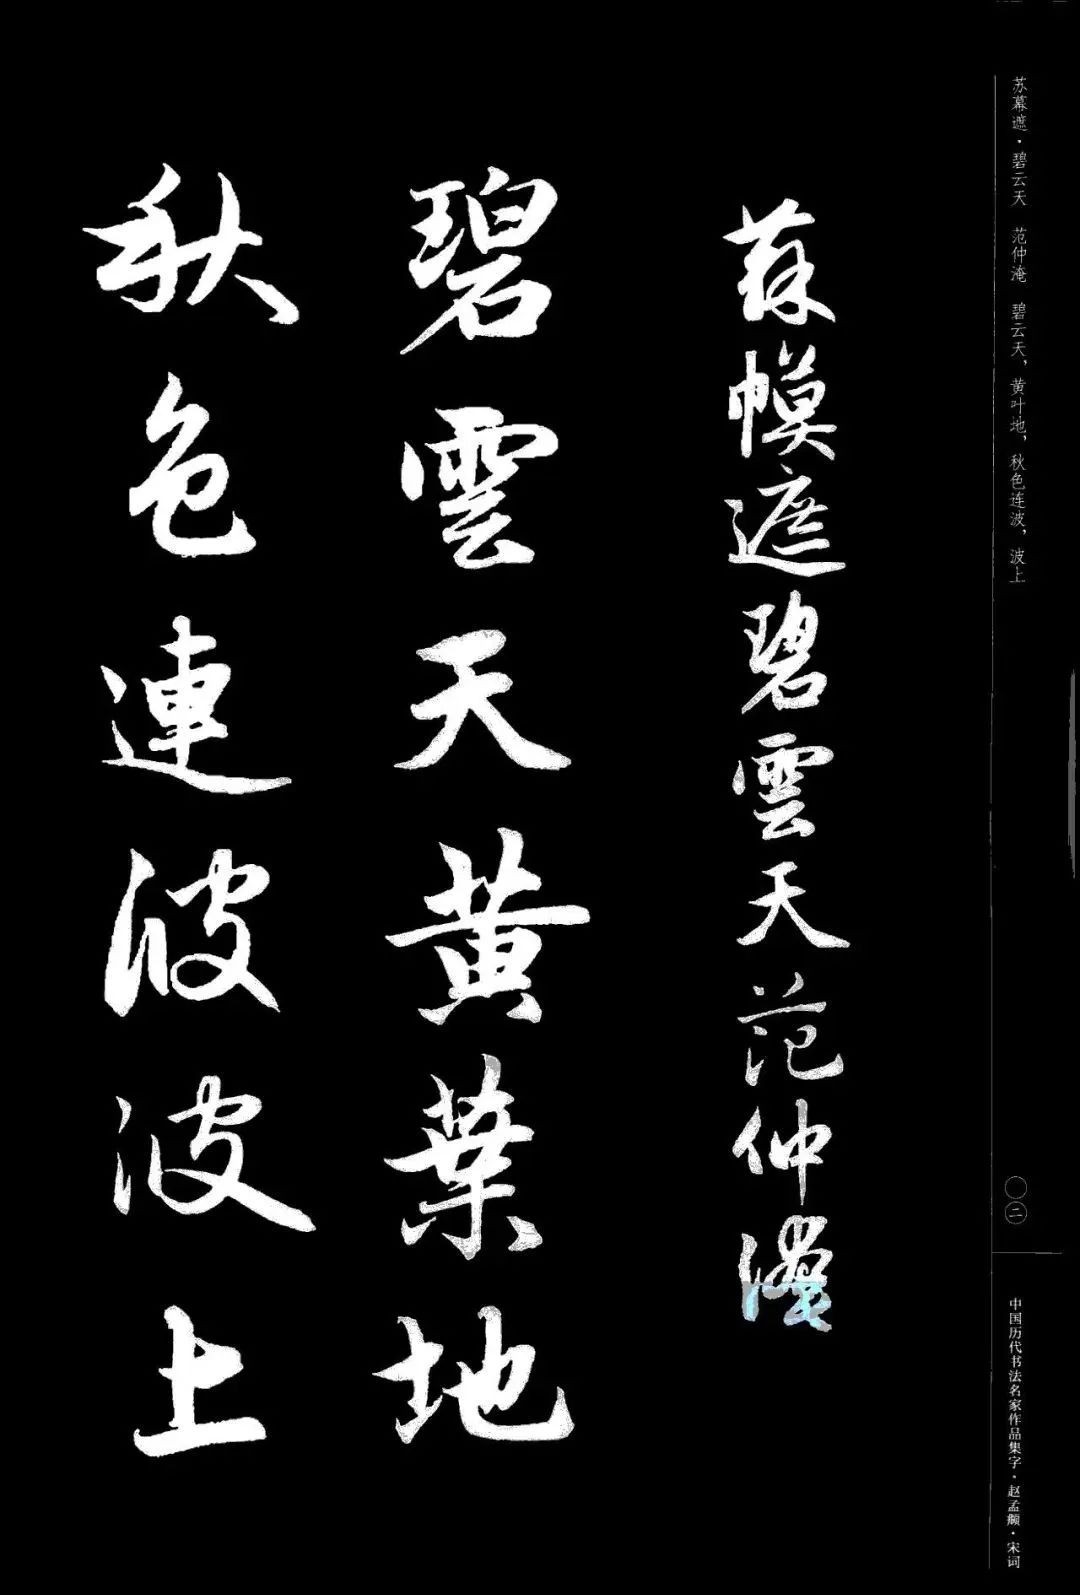 苏幕遮·碧云天　范仲淹　碧云天，黄叶地，秋色连波，波上
〇二
中国历代书法名家作品集字·赵孟頫·宋词
蘇幙遮碧雲天范仲淹
碧雲天黄葉地
秋色連波波上